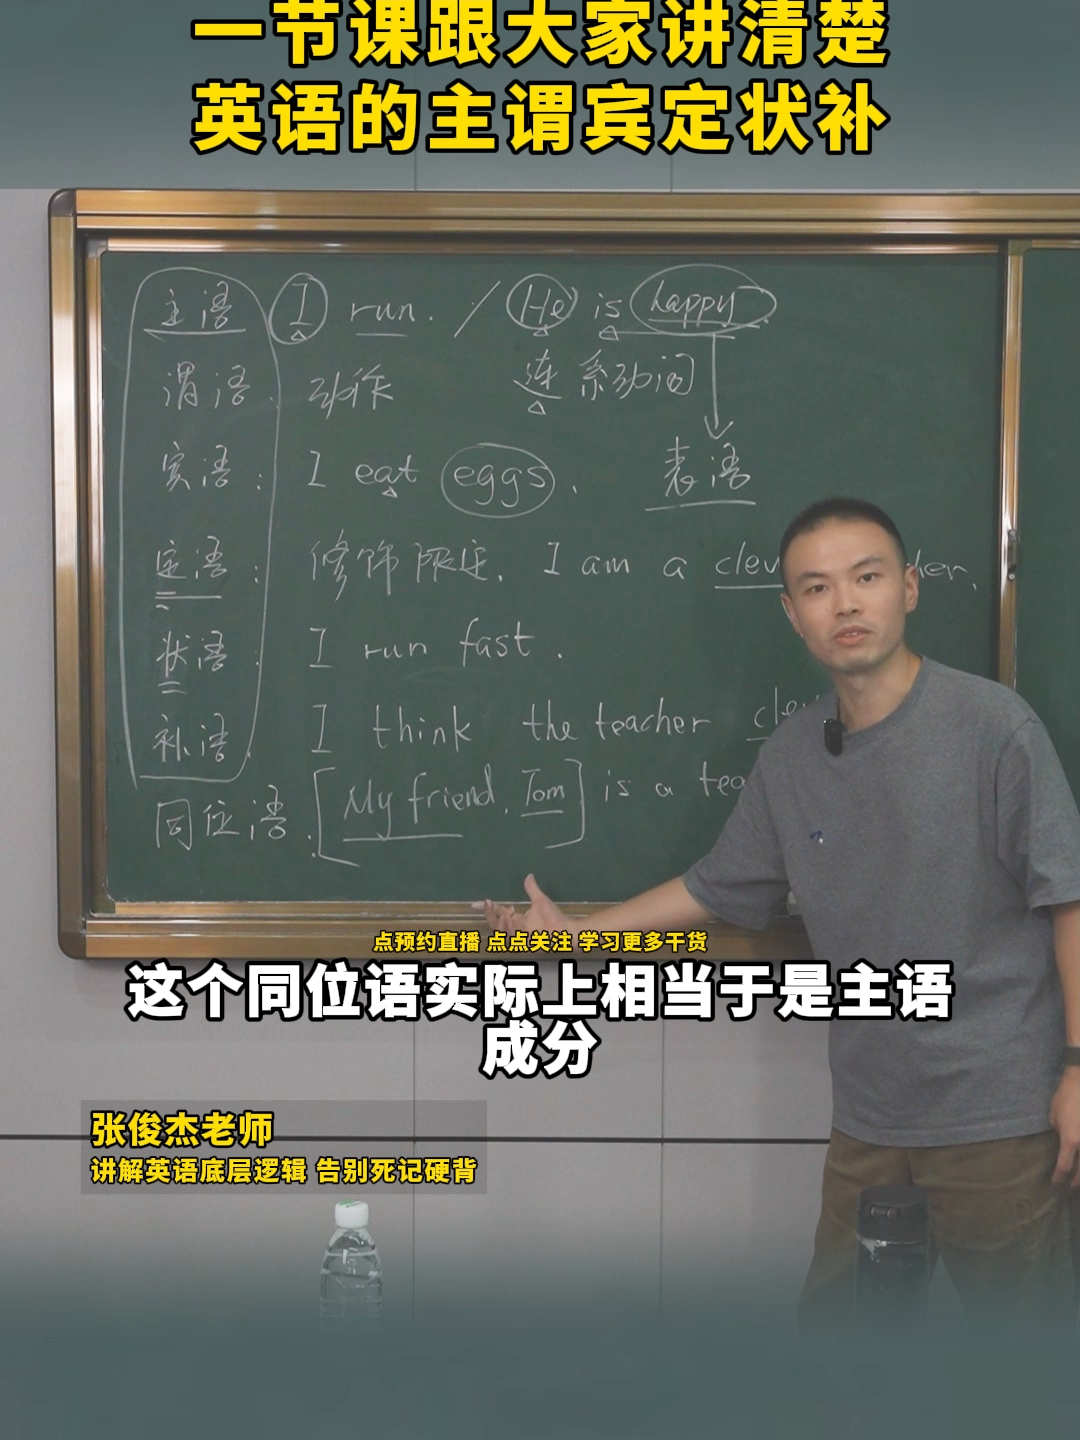 一节课跟大家讲清楚
英语的主谓宾定状补
主语 I run. / He is happy.
谓语. 动作 连系动词
宾语: I eat eggs. 表语
定语: 修饰限定. I am a
状语: I run fast.
补语. I think the teacher
同位语: [My friend, Tom] is a
点预约直播 点点关注 学习更多干货
这个同位语实际上相当于是主语
成分
张俊杰老师
讲解英语底层逻辑 告别死记硬背